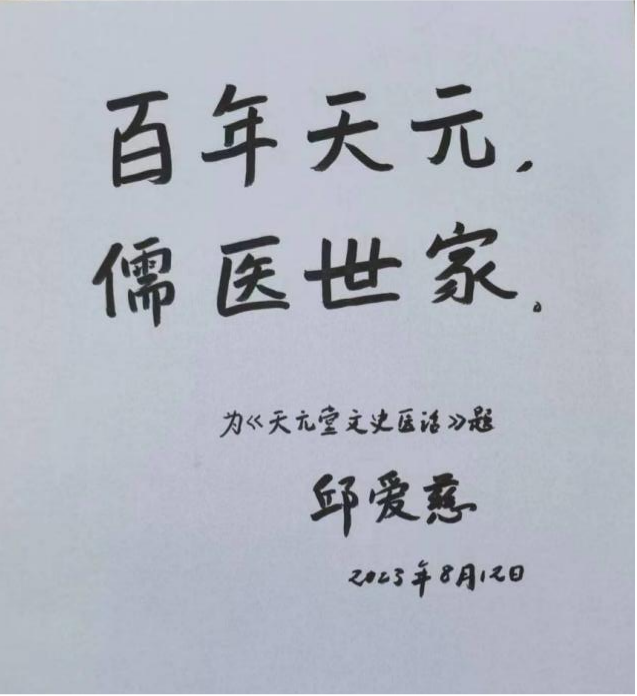 百年天元，
儒医世家。
为《天元堂文史医话》题
邱爱慈
2023年8月12日